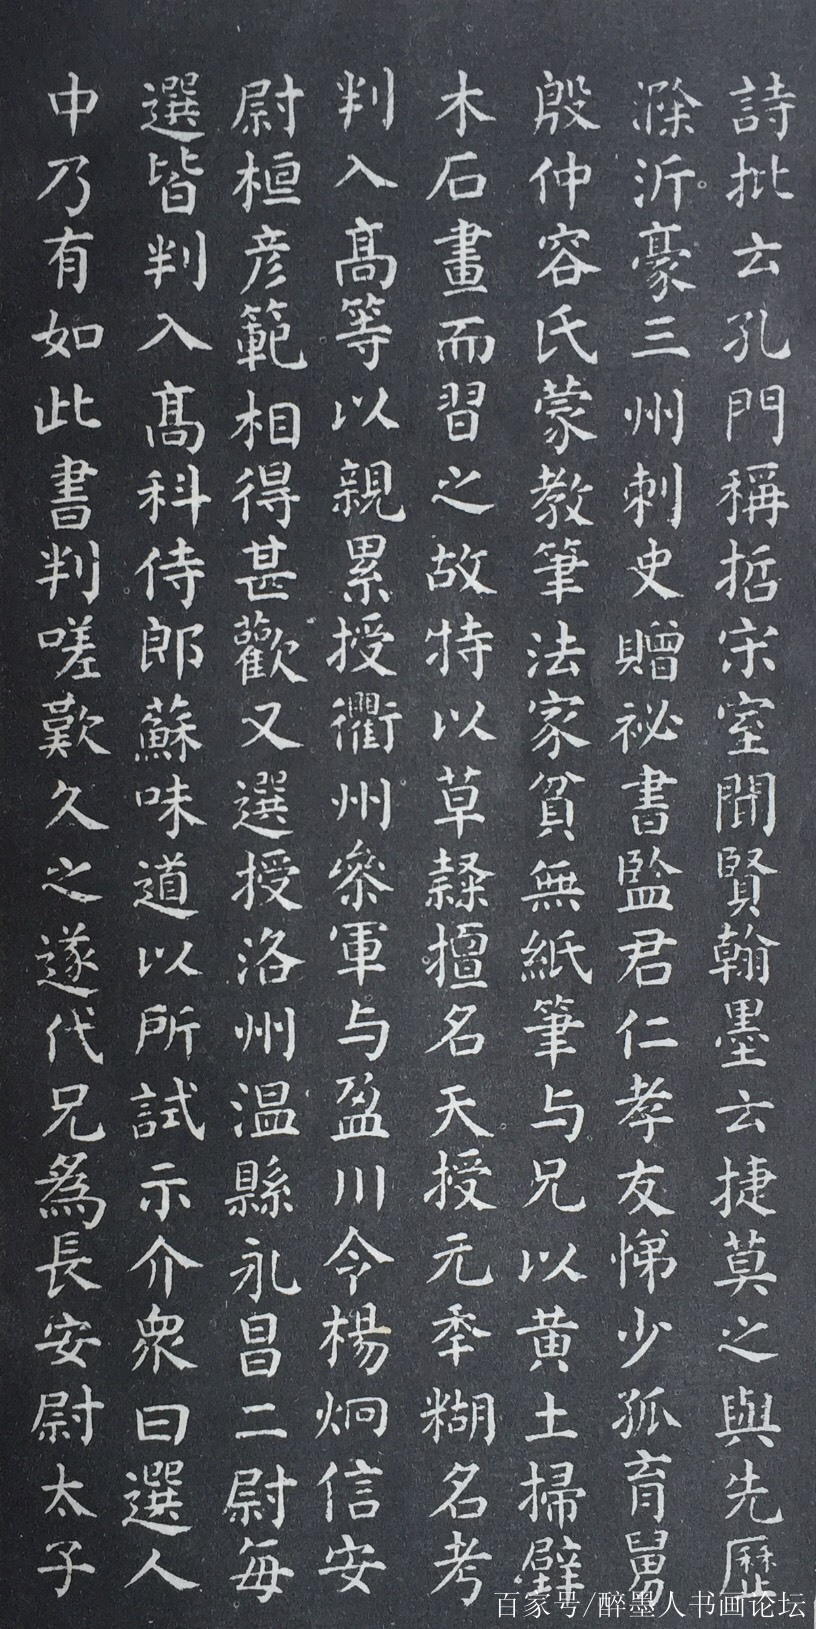 詩批云孔門稱哲宋室聞賢翰墨云捷莫之與先歷
滁沂豪三州刺史贈祕書監君仁孝友悌少孤育舅
殷仲容氏蒙教筆法家貧無紙筆与兄以黄土掃壁
木石畫而習之故特以草隸擅名天授元秊糊名考
判入高等以親累授衢州叅軍与盈川令楊炯信安
尉桓彦範相得甚歡又選授洛州温縣永昌二尉每
選皆判入高科侍郎蘇味道以所試示介衆曰選人
中乃有如此書判嗟歎久之遂代兄為長安尉太子
百家号/醉墨人书画论坛